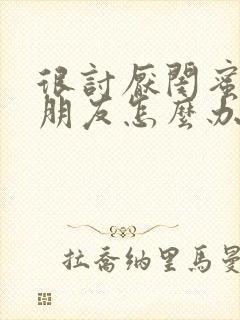 很討厭閨蜜
朋友怎麼办
拉喬納里馬曼